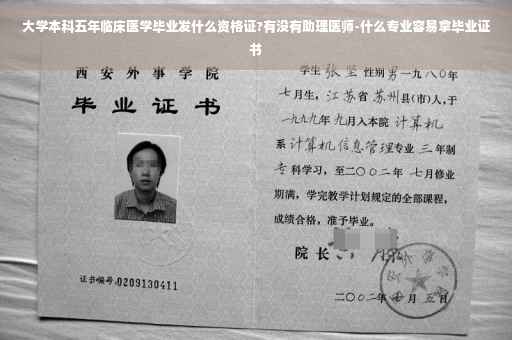 大学本科五年临床医学毕业发什么资格证?有没有助理医师-什么专业容易拿毕业证
书
西安外事学院
毕业证书
证书编号:0209130411
学生 张 性别 男 一九八〇年
七月生,江苏省 苏州县(市)人,于
一九九九年 九月入本院 计算机
系 计算机信息管理专业 三 年制
专 科学习,至二〇〇二年 七月修业
期满,学完教学计划规定的全部课程,
成绩合格,准予毕业。
院长
二〇〇二年 月 五 日